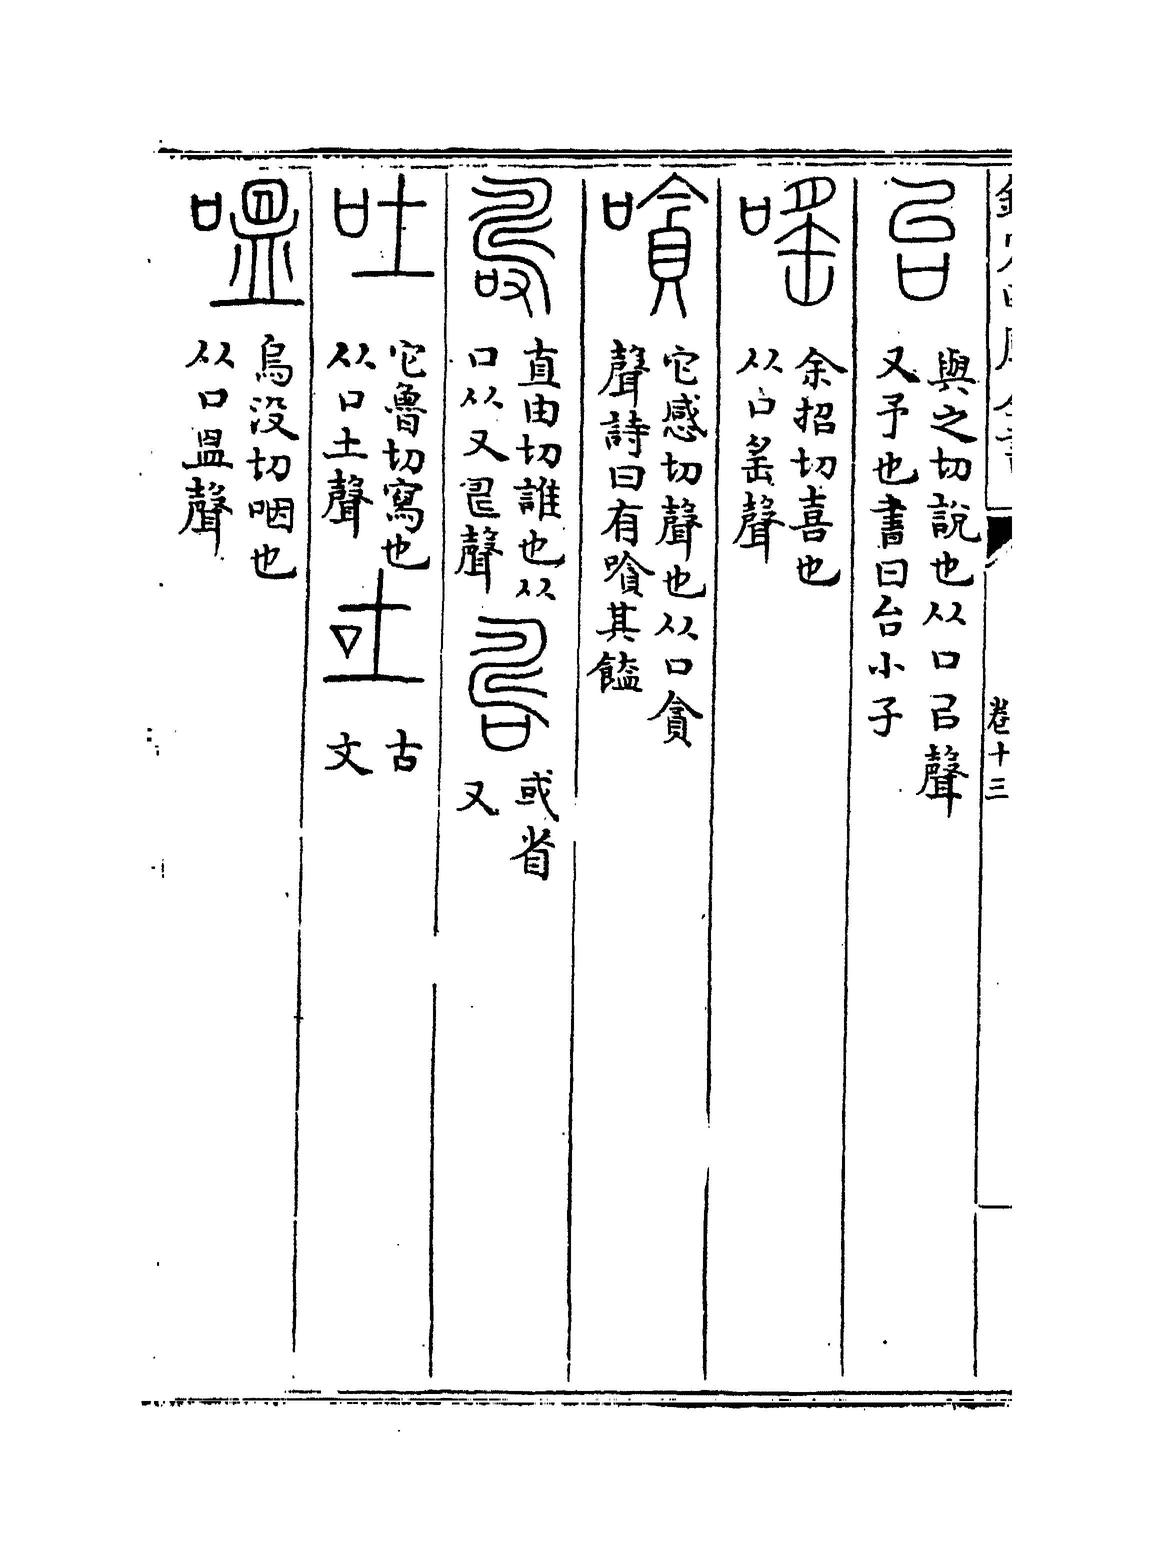 卷十三
台 與之切說也从口㠯聲
又予也書曰台小子
嗂 余招切喜也
从口䍃聲
嗿 它感切聲也从口貪
聲詩曰有嗿其饁
直由切誰也从
口从又𠃬聲 或省
又
吐 它魯切寫也
从口土聲 古
文
嗢 烏没切咽也
从口昷聲